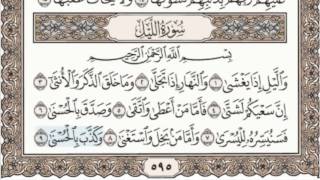 عَلَيْهِمْ رَبُّهُم بِذَنۢبِهِمْ فَسَوَّىٰهَا ١٤ وَلَا يَخَافُ عُقْبَٰهَا ١٥
سُورَةُ اللَّيْلِ
بِسْمِ ٱللَّهِ ٱلرَّحْمَٰنِ ٱلرَّحِيمِ
وَٱلَّيْلِ إِذَا يَغْشَىٰ ١ وَٱلنَّهَارِ إِذَا تَجَلَّىٰ ٢ وَمَا خَلَقَ ٱلذَّكَرَ وَٱلْأُنثَىٰ ٣
إِنَّ سَعْيَكُمْ لَشَتَّىٰ ٤ فَأَمَّا مَنْ أَعْطَىٰ وَٱتَّقَىٰ ٥ وَصَدَّقَ بِٱلْحُسْنَىٰ ٦
فَسَنُيَسِّرُهُۥ لِلْيُسْرَىٰ ٧ وَأَمَّا مَنۢ بَخِلَ وَٱسْتَغْنَىٰ ٨ وَكَذَّبَ بِٱلْحُسْنَىٰ ٩
٥٩٥